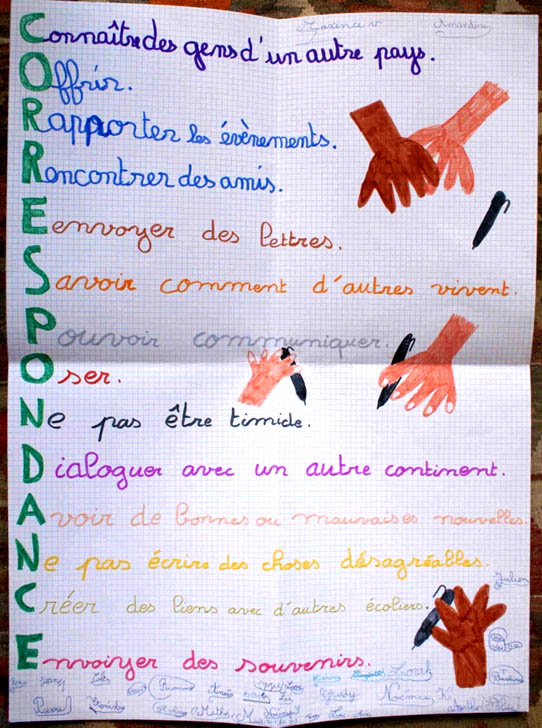 Amandine
Connaître des gens d'un autre pays.
Offrir.
Rapporter les évènements.
Rencontrer des amis.
Eenvoyer des lettres.
Savoir comment d'autres vivent.
Pouvoir communiquer.
Oser.
Ne pas être timide.
Dialoguer avec un autre continent.
Avoir de bonnes ou mauvaises nouvelles.
Ne pas écrire des choses désagréables.
Julien
Créer des liens avec d'autres écoliers.
Envoyer des souvenirs.
Noémie K